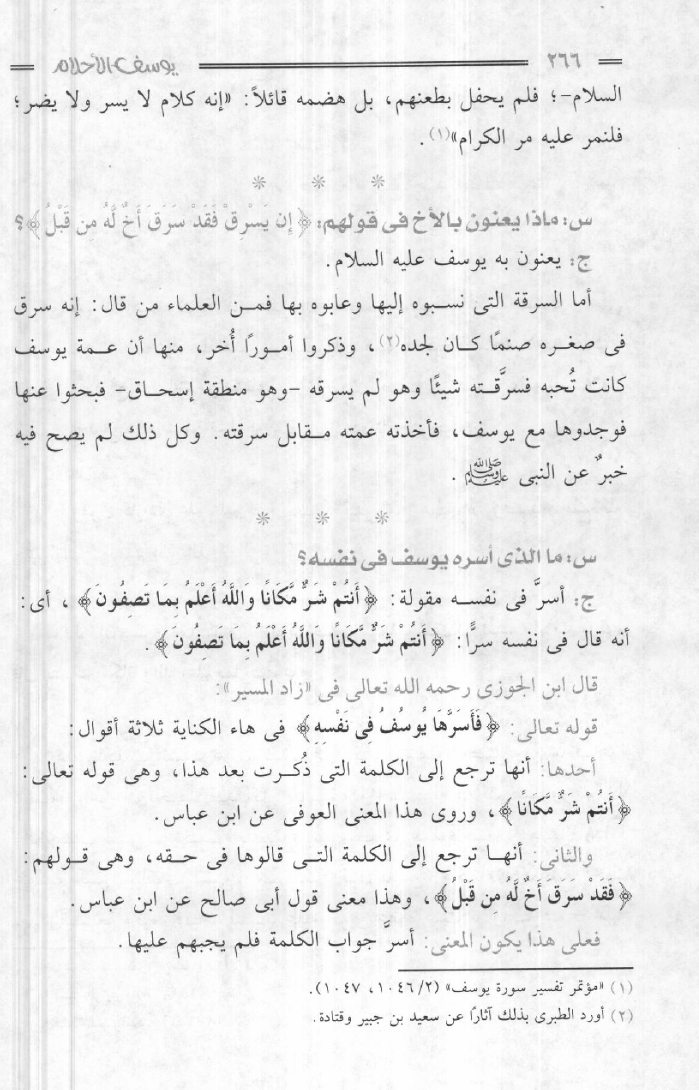 ٢٦٦ يوسف الأحلام
السلام-؛ فلم يحفل بطعنهم، بل هضمه قائلاً: «إنه كلام لا يسر ولا يضر؛
فلنمر عليه مر الكرام»(١).
* * *
س: ماذا يعنون بالأخ فى قولهم: ﴿إِن يَسْرِقْ فَقَدْ سَرَقَ أَخٌ لَّهُ مِن قَبْلُ﴾؟
ج: يعنون به يوسف عليه السلام.
أما السرقة التى نسبوه إليها وعابوه بها فمن العلماء من قال: إنه سرق
فى صغره صنمًا كان لجده(٢)، وذكروا أمورًا أُخر، منها أن عمة يوسف
كانت تُحبه فسرَّقته شيئًا وهو لم يسرقه -وهو منطقة إسحاق- فبحثوا عنها
فوجدوها مع يوسف، فأخذته عمته مقابل سرقته. وكل ذلك لم يصح فيه
خبرٌ عن النبى ﷺ.
* * *
س: ما الذى أسره يوسف فى نفسه؟
ج: أسرَّ فى نفسه مقولة: ﴿أَنتُمْ شَرٌّ مَّكَانًا وَاللَّهُ أَعْلَمُ بِمَا تَصِفُونَ﴾، أى:
أنه قال فى نفسه سرًّا: ﴿أَنتُمْ شَرٌّ مَّكَانًا وَاللَّهُ أَعْلَمُ بِمَا تَصِفُونَ﴾.
قال ابن الجوزى رحمه الله تعالى فى «زاد المسير»:
قوله تعالى: ﴿فَأَسَرَّهَا يُوسُفُ فِى نَفْسِهِ﴾ فى هاء الكناية ثلاثة أقوال:
أحدها: أنها ترجع إلى الكلمة التى ذُكرت بعد هذا، وهى قوله تعالى:
﴿أَنتُمْ شَرٌّ مَّكَانًا﴾، وروى هذا المعنى العوفى عن ابن عباس.
والثانى: أنها ترجع إلى الكلمة التى قالوها فى حقه، وهى قولهم:
﴿فَقَدْ سَرَقَ أَخٌ لَّهُ مِن قَبْلُ﴾، وهذا معنى قول أبى صالح عن ابن عباس.
فعلى هذا يكون المعنى: أسرَّ جواب الكلمة فلم يجبهم عليها.
(١) «مؤتمر تفسير سورة يوسف» (١٠٤٦/٢، ١٠٤٧).
(٢) أورد الطبرى بذلك آثارًا عن سعيد بن جبير وقتادة.